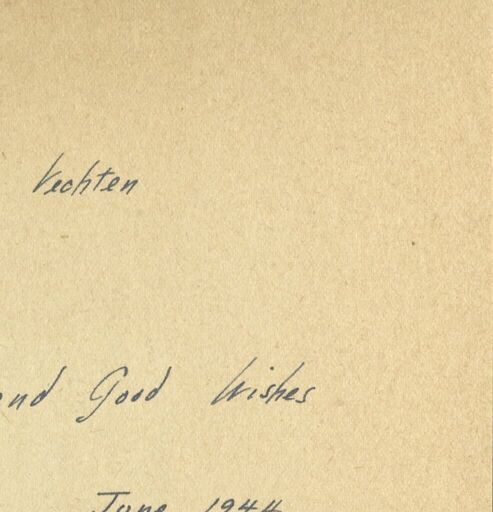 Vechten
and Good Wishes
June 1944